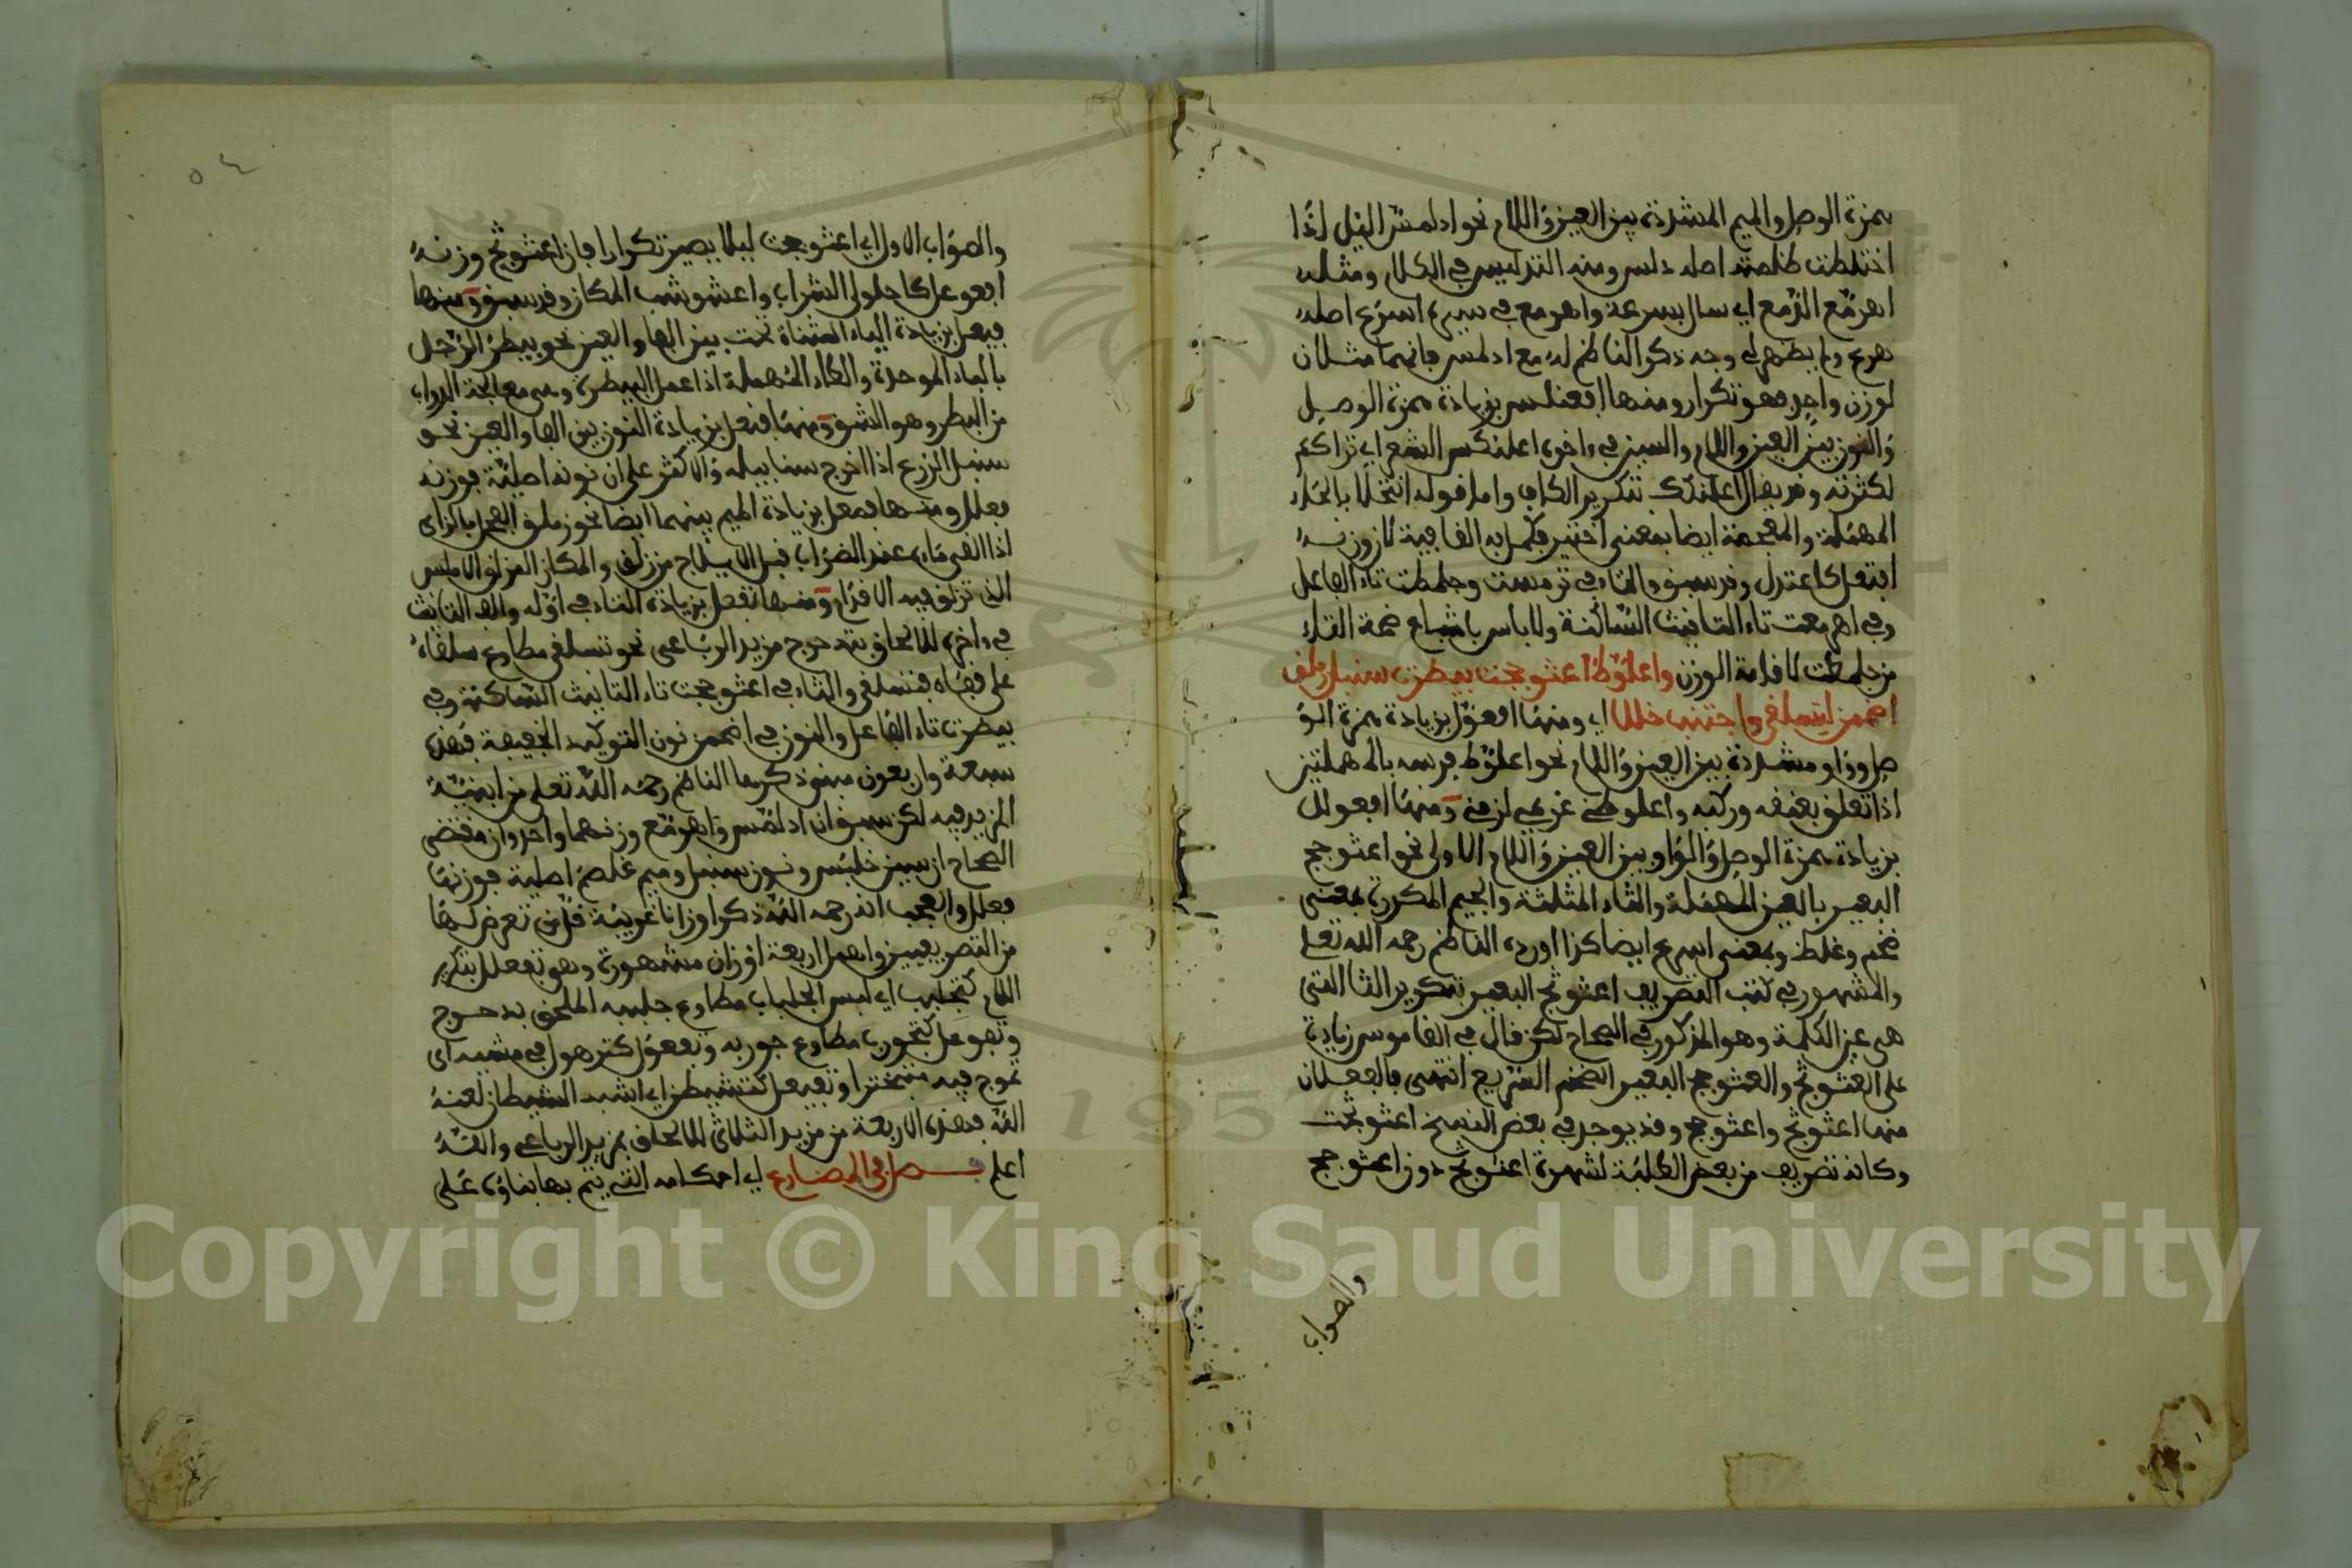 همزة الوصل والميم المشددة بين العين واللام نحو ادلمس الليل اذا
اختلطت ظلمته اصله دلس ومنه التدليس في الكلام ومثله
اهرمع الدمع اي سال بسرعة واهرمع في سيره اسرع اصله
هرع ولم يظهر لي وجه ذكر الناظم له مع ادلمس فانهما مثلان
لوزن واحد فهو تكرار ومنها افعنلس بزيادة همزة الوصل
والنون بين العين واللام والسين في ءاخره اعلنكس الشعر اي تراكم
لكثرته وقد يقال اعلنكك بتكرير الكاف واما قوله انتخلا بالخاء
المهملة والمعجمة ايضا بمعنى اختير فكمل به القافية لان وزنه
افتعل كاعتدل وقد سبق والتاء في ترمست وجلمطت تاء الفاعل
وفي اهرمعت تاء التانيث الساكنة ولا باس باشباع ضمة التاء
من جلمطت لاقامة الوزن واعلوط اعثوججت بيطرت سنبل زملق
اضممن تسلقى واجتنب خللا اي ومنها افعول بزيادة همزة الو
صل وواو مشددة بين العين واللام نحو اعلوط فرسه بالمهملتين
اذا تعلق بعنقه وركبه واعلوطني غريمي لزمني ومنها افعولل
بزيادة همزة الوصل والواو بين العين واللام الاولى نحو اعثوجج
البعير بالعين المهملة والثاء المثلثة والجيم المكررة بمعنى
ضخم وغلظ وبمعنى اسرع ايضا كذا اورده الناظم رحمه الله تعلى
والمشهور في كتب التصريف اعثوثج البعير بتكرير الثا التي
هي عين الكلمة وهو المذكور في الصحاح لكن قال في القاموس زيادة
على العثوثج والعثوجج البعير الضخم السريع انتهى فالفعلان
منها اعثوثج واعثوجج وقد يوجد في بعض النسخ اعثوثجت
وكانه تصريف من بعض الطلبة لشهرة اعثوثج دون اعثوجج
والصواب
٥٤
والصواب الاول اي اعثوججت ليلا يصير تكرارا فان اعثوثج وزنه
افعوعل كاحلولى الشراب واعشوشب المكان وقد سبق ومنها
فيعل بزيادة الياء المثناة تحت بين الفا والعين نحو بيطر الرجل
بالباء الموحدة والطاء المهملة اذا عمل البيطرة وهي معالجة الدواب
من البطر وهو الشق ومنها فنعل بزيادة النون بين الفا والعين نحو
سنبل الزرع اذا اخرج سنابيله والاكثر على ان نونه اصلية فوزنه
فعلل ومنها فمعل بزيادة الميم بينهما ايضا نحو زملق الفحل بالزاي
اذا القى ماءه عند الضراب قبل الايلاج من زلق والمكان المزلق الاملس
الذي تزلق فيه الاقدام ومنها تفعلى بزيادة التاء في اوله والف التانيث
في ءاخره للالحاق بتدحرج مزيد الرباعي نحو تسلقى مطاوع سلقاه
على قفاه فتسلقى والتاء في اعثوججت تاء التانيث الساكنة وفي
بيطرت تاء الفاعل والنون في اضممن نون التوكيد الخفيفة فهذه
سبعة واربعون مبنى ذكرها الناظم رحمه الله تعلى من ابنية
المزيد فيه لكن سبق ان ادلمس واهرمع وزنهما واحد وان مقتضى
الصحاح ان سين خلبس ونون سنبل وميم غلصم اصلية فوزنها
فعلل والعجب انه رحمه الله ذكر اوزانا غريبة قل من تعرض لها
من التصريفيين واهمل اربعة اوزان مشهورة وهو تفعلل بتكرير
اللام كتجلبب اي لبس الجلباب مطاوع جلببه الملحق بدحرج
وتفوعل كتجورب مطاوع جوربه وتفعول كترهول في مشيه اي
تموج فيه متبخترا وتفيعل كتشيطن اي اشبه الشيطان لعنه
الله فهذه الاربعة من مزيد الثلاثي للالحاق بمزيد الرباعي والله
اعلم فصل في المضارع اي احكامه التي يتم بها بناؤه على